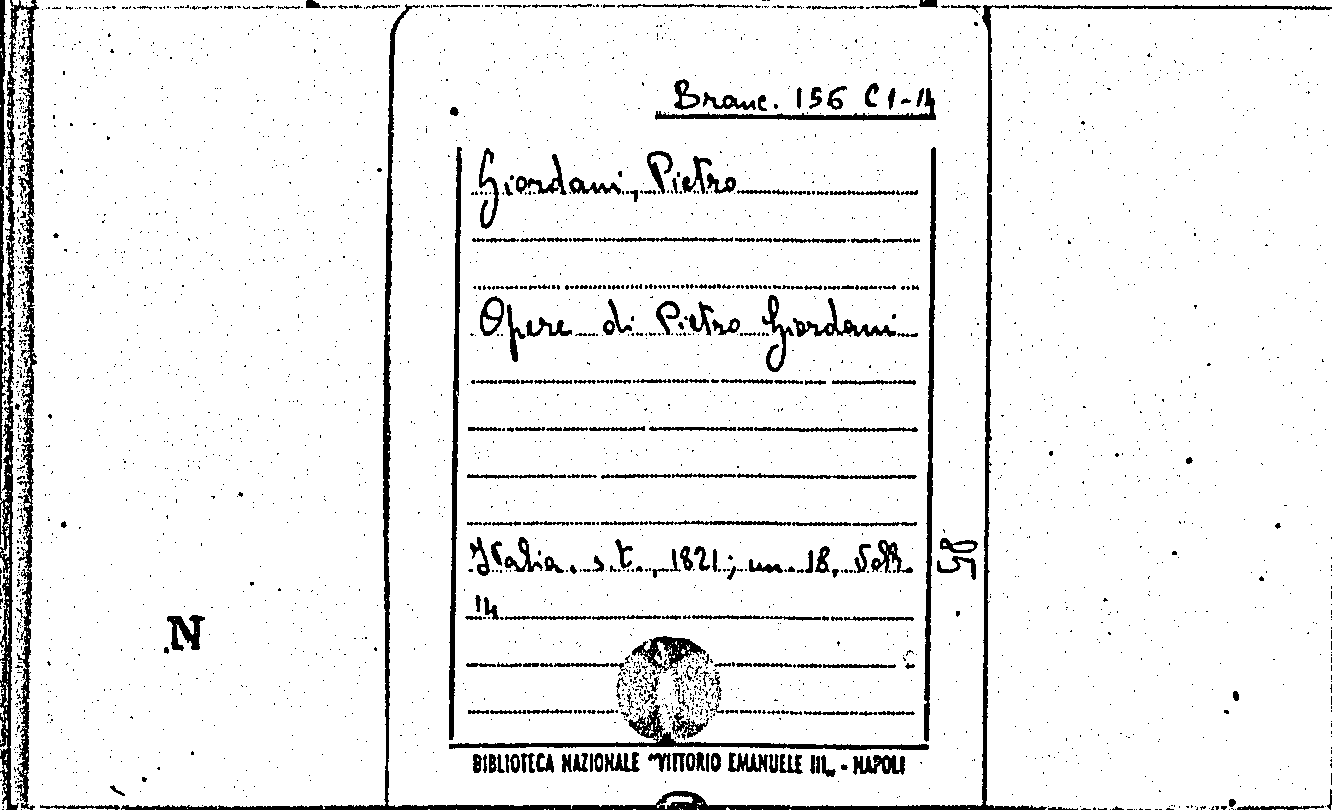 Branc. 156 C 1-14
Giordani, Pietro
Opere di Pietro Giordani
Italia. s.t., 1821; in. 18, Voll.
14
58
N
BIBLIOTECA NAZIONALE "VITTORIO EMANUELE III„ - NAPOLI